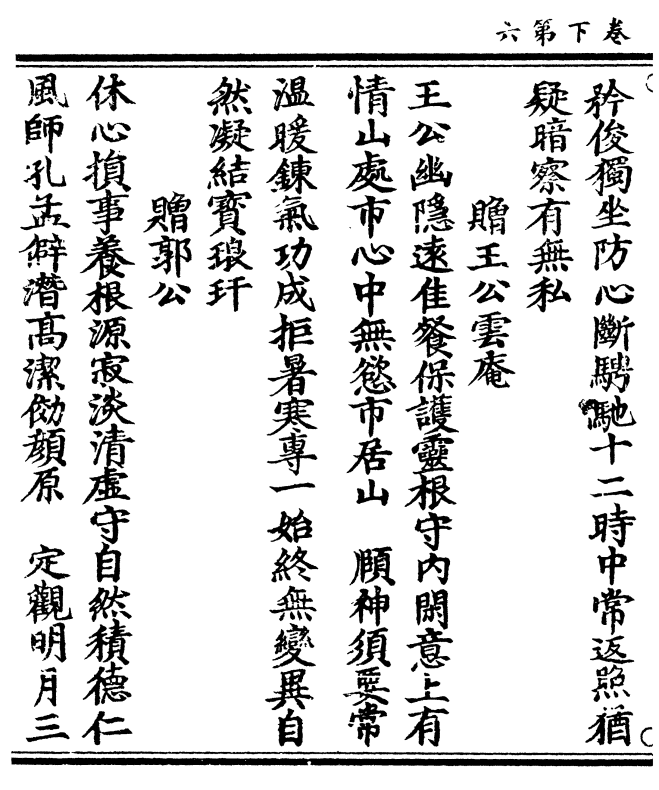 卷下第六
矜俊獨坐防心斷騁馳十二時中常返照猶
疑暗察有無私
贈王公雲庵
王公幽隱遠佳餐保護靈根守內閑意上有
情山處市心中無慾市居山　頤神須要常
溫暖鍊氣功成拒暑寒專一始終無變異自
然凝結寶琅玕
贈郭公
休心損事養根源寂淡清虛守自然積德仁
風師孔孟僻潛高潔効顏原　定觀明月三